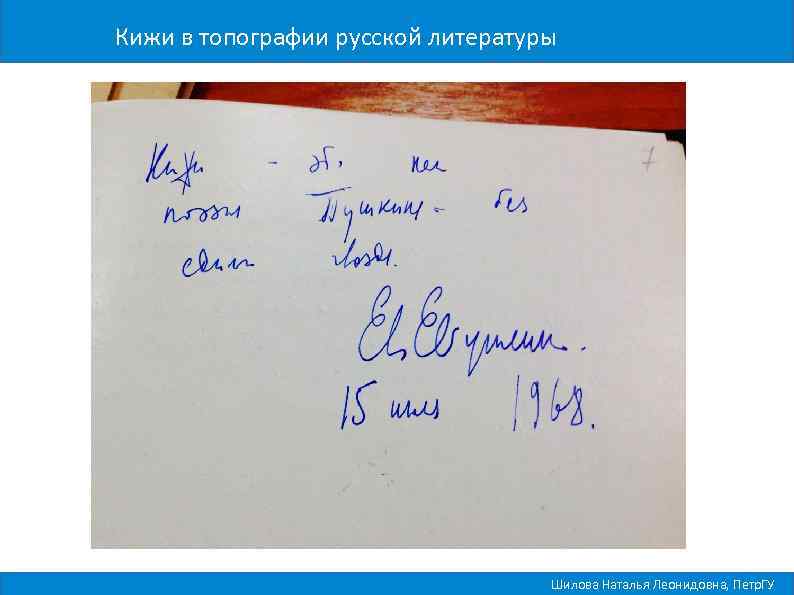 Кижи в топографии русской литературы
Кижи - это как
7
поэзия Пушкина - без
гвоздя.
Евг. Евтушенко.
15 июля 1968.
Шилова Наталья Леонидовна, ПетрГУ